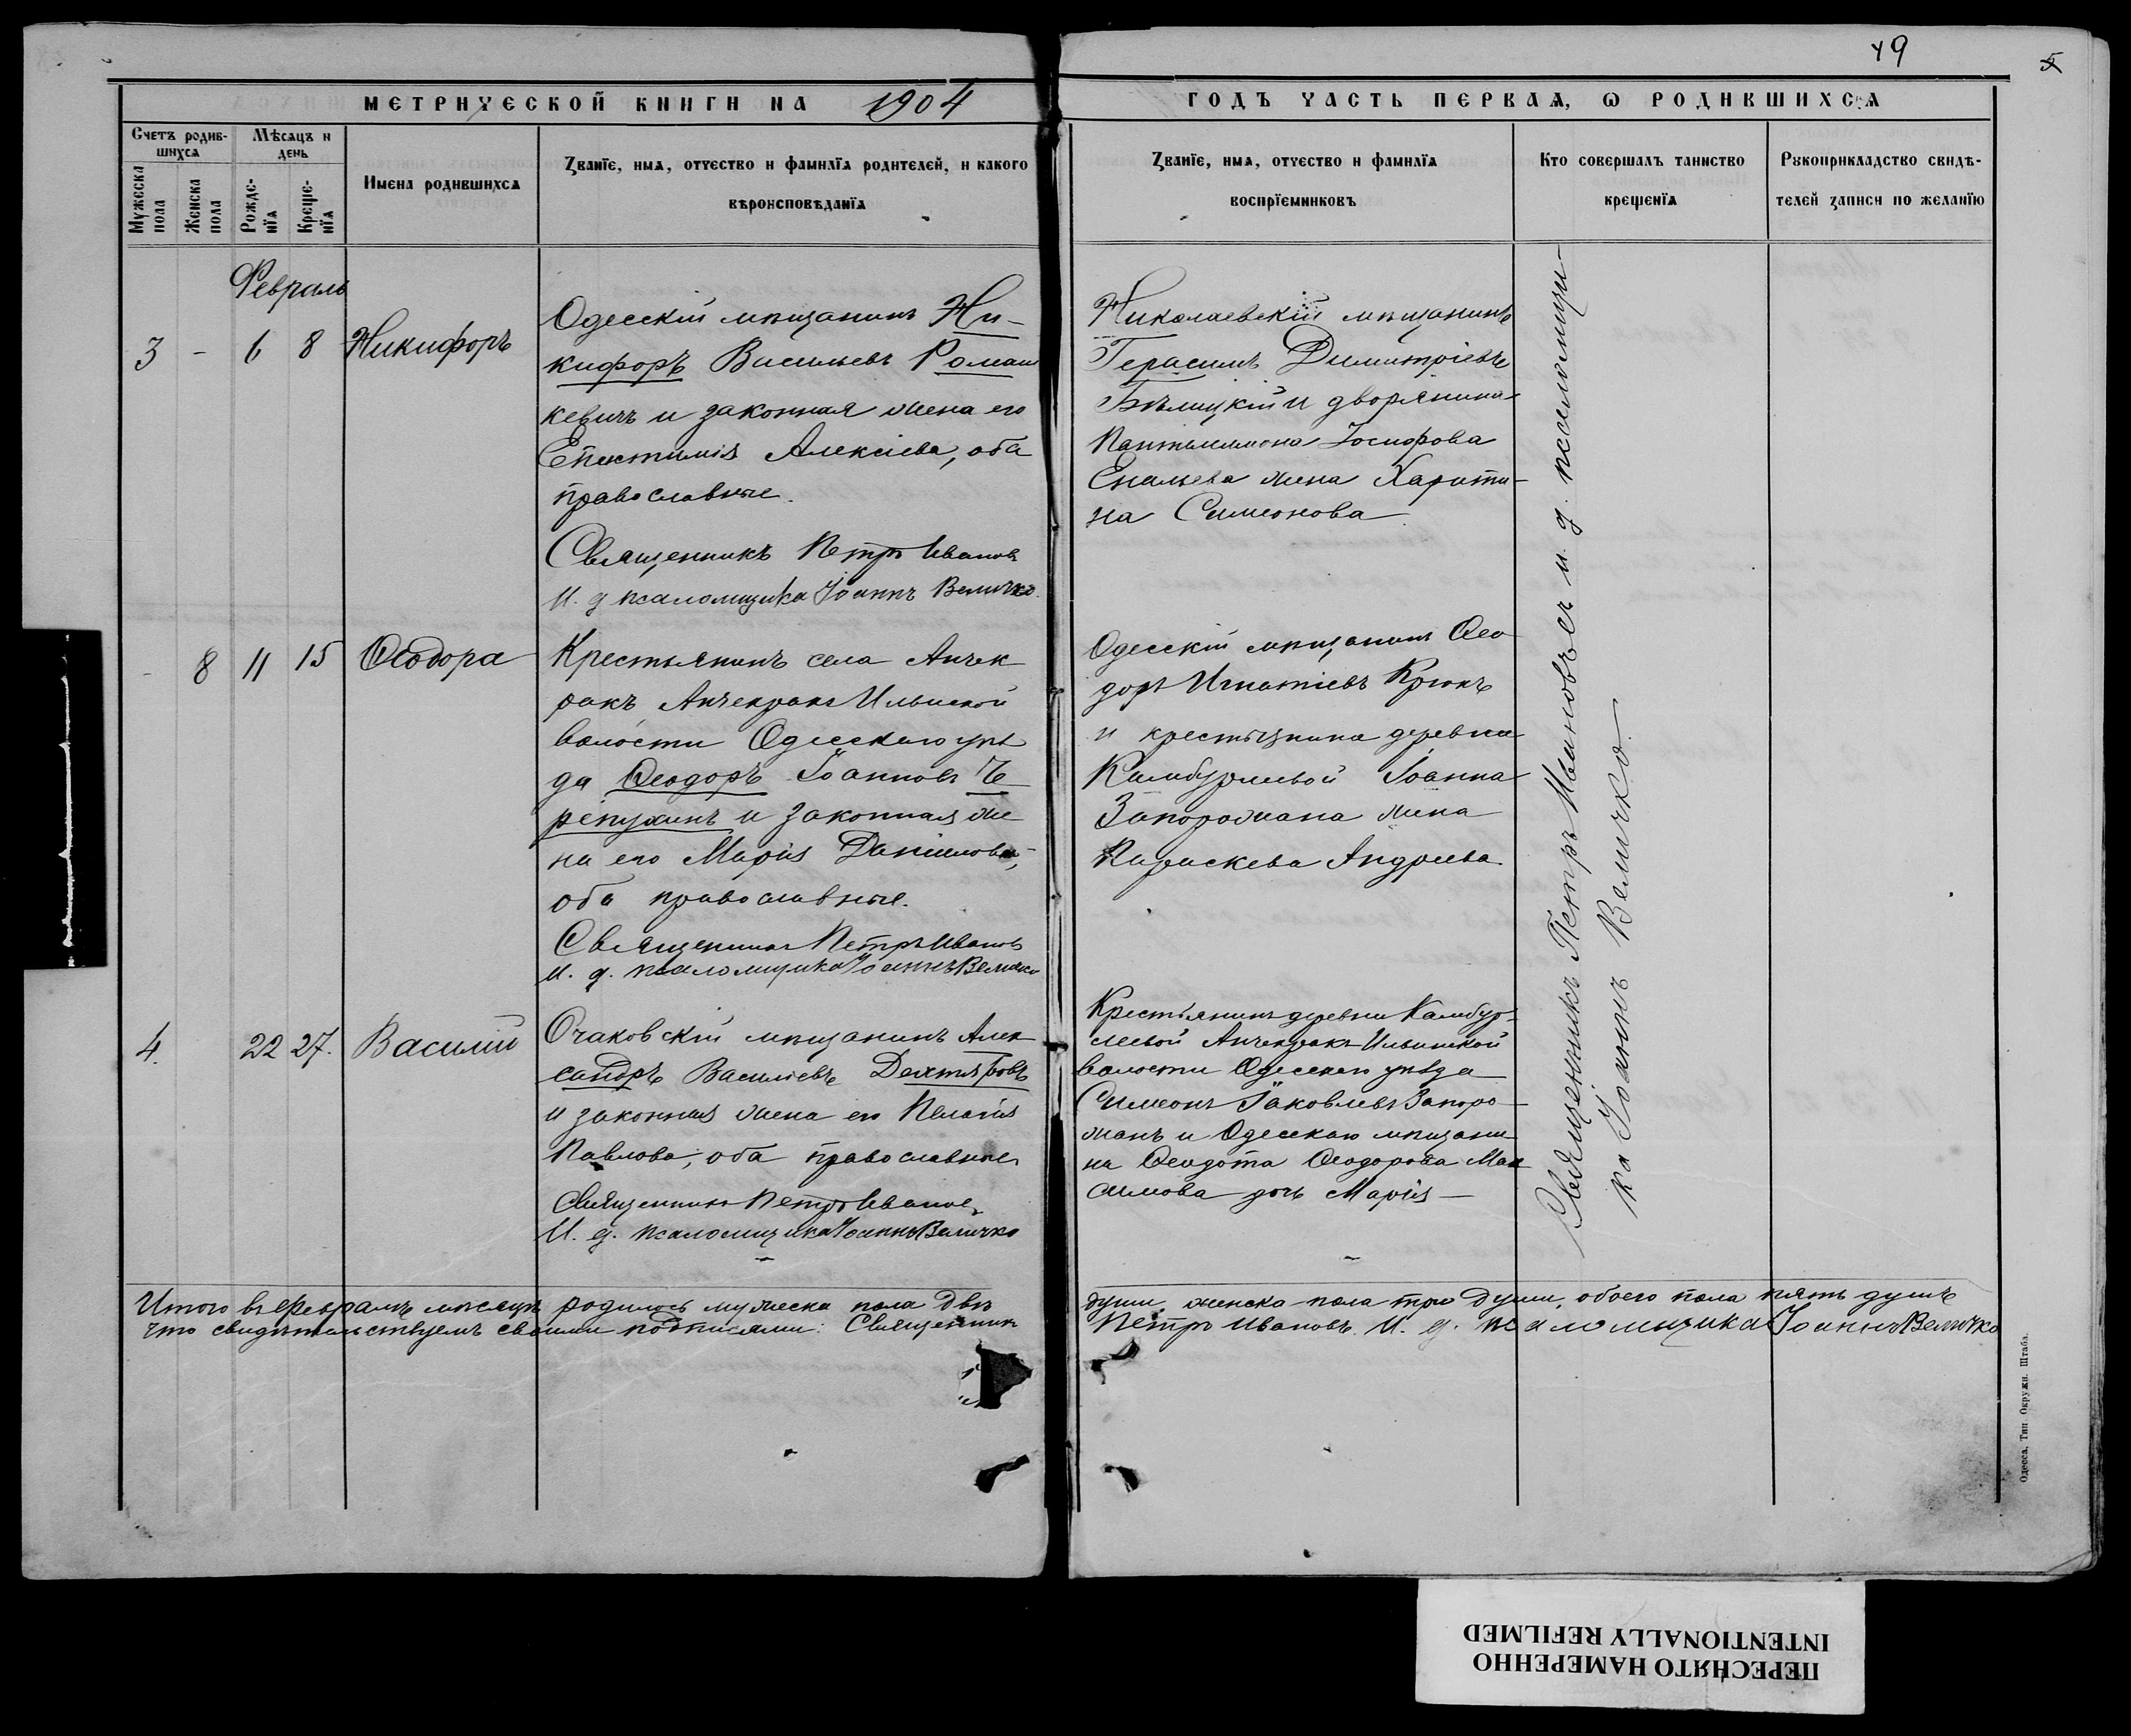 49
5
МЕТРИЧЕСКОЙ КНИГИ НА 1904
ГОДЪ ЧАСТЬ ПЕРВАЯ, Ѡ РОДИВШИХСЯ
Счетъ родившихся
Мужеска пола
Женска пола
Мѣсяцъ и день
Рождениїя
Крещенїя
Имена родившихся
Званїе, имя, отчество и фамилїя родителей, и какого
вѣроисповѣданїя
Званїе, имя, отчество и фамилїя
воспрїемниковъ
Кто совершалъ таинство
крещенїя
Рукоприкладство свидѣ-
телей записи по желанїю
Февраль
3 - 6 8 Никифоръ
Одесскій мѣщанинъ Ни-
кифоръ Васильевъ Роман
кевичъ и законная жена его
Епистимія Алексіева, оба
православные.
Священникъ Петръ Ивановъ
И. д псаломщика Іоаннъ Величко.
Николаевскій мѣщанинъ
Герасимъ Димитріевъ
Бѣлицкій и дворянина
Пантелеимона Іосифова
жена Харити-
на Симеонова.
- 8 11 15 Ѳеодора
Крестьянинъ села Анчек
ракъ Анчекракъ Ильинской
волости Одесскаго уѣз
да Ѳеодоръ Іоанновъ Че
репухинъ и законная же
на его Марія Даніилова,
оба православные.
Священникъ Петръ Ивановъ
И. д. псаломщика Іоаннъ Величко
Одесскій мѣщанинъ Ѳео
доръ Игнатіевъ Крюкъ
и крестьянина деревни
Камбурлеевой Іоанна
Запорожана жена
Параскева Андреева.
4. 22 27. Василій
Очаковскій мѣщанинъ Алек
сандръ Василіевъ Дехтяровъ
и законная жена его Пелагія
Павлова, оба православные
Священникъ Петръ Ивановъ
И. д. псаломщика Іоаннъ Величко
Крестьянинъ деревни Камбур-
леевой Анчекракъ Ильинской
волости Одесскаго уѣзда
Симеонъ Іаковлевъ Запоро-
жанъ и Одесскаго мѣщани-
на Ѳеодота Ѳеодорова Мак
симова дочь Марія —
Священникъ Петръ Ивановъ и и. д. псаломщи-
ка Іоаннъ Величко.
Итого въ Февралѣ мѣсяцѣ родилось мужеска пола двѣ
души, женска пола три души, обоего пола пять душъ
что свидѣтельствуемъ своими подписями: Священник
Петръ Ивановъ. И. д. псаломщика Іоаннъ Величко
Одесса, Тип. Окружн. Штаба.
ПЕРЕСНЯТО НАМЕРЕННО
INTENTIONALLY REFILMED